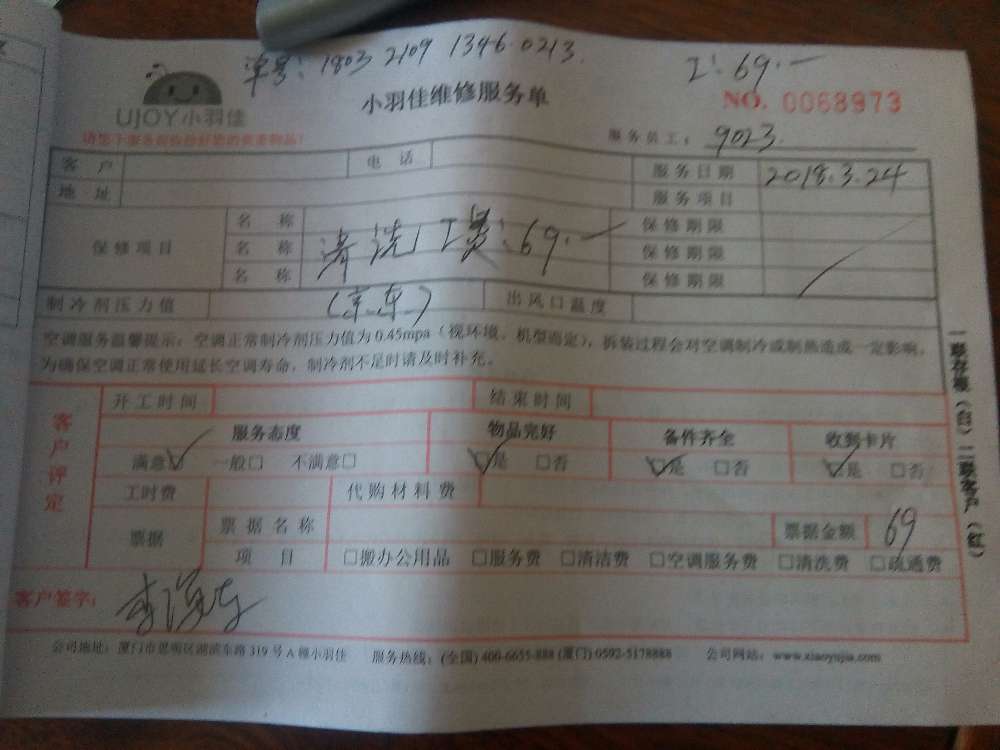 单号: 1803 2109 1346.0213.
工: 69.一
UJOY小羽佳
小羽佳维修服务单
NO. 0068973
服务员工: 9023
客户 电话 服务日期 2018.3.24
地址 服务项目
保修项目 名称 清洗工费: 69.一 保修期限
名称 保修期限
名称 保修期限
制冷剂压力值 (京东) 出风口温度
空调服务温馨提示: 空调正常制冷剂压力值为0.45mpa（视环境、机型而定），拆装过程会对空调制冷或制热造成一定影响。
为确保空调正常使用延长空调寿命，制冷剂不足时请及时补充。
客户评定
开工时间 结束时间
服务态度 物品完好 备件齐全 收到卡片
满意☑ 一般□ 不满意□ ☑是 □否 ☑是 □否 ☑是 □否
工时费 代购材料费
票据 票据名称 票据金额 69
项目 □搬办公用品 □服务费 □清洁费 □空调服务费 □清洗费 □疏通费
客户签字:
公司地址: 厦门市思明区湖滨东路319号A幢小羽佳 服务热线: (全国) 400-6655-888 (厦门) 0592-5178888 公司网站: www.xiaoyujia.com
一联存根（白）二联客户（红）